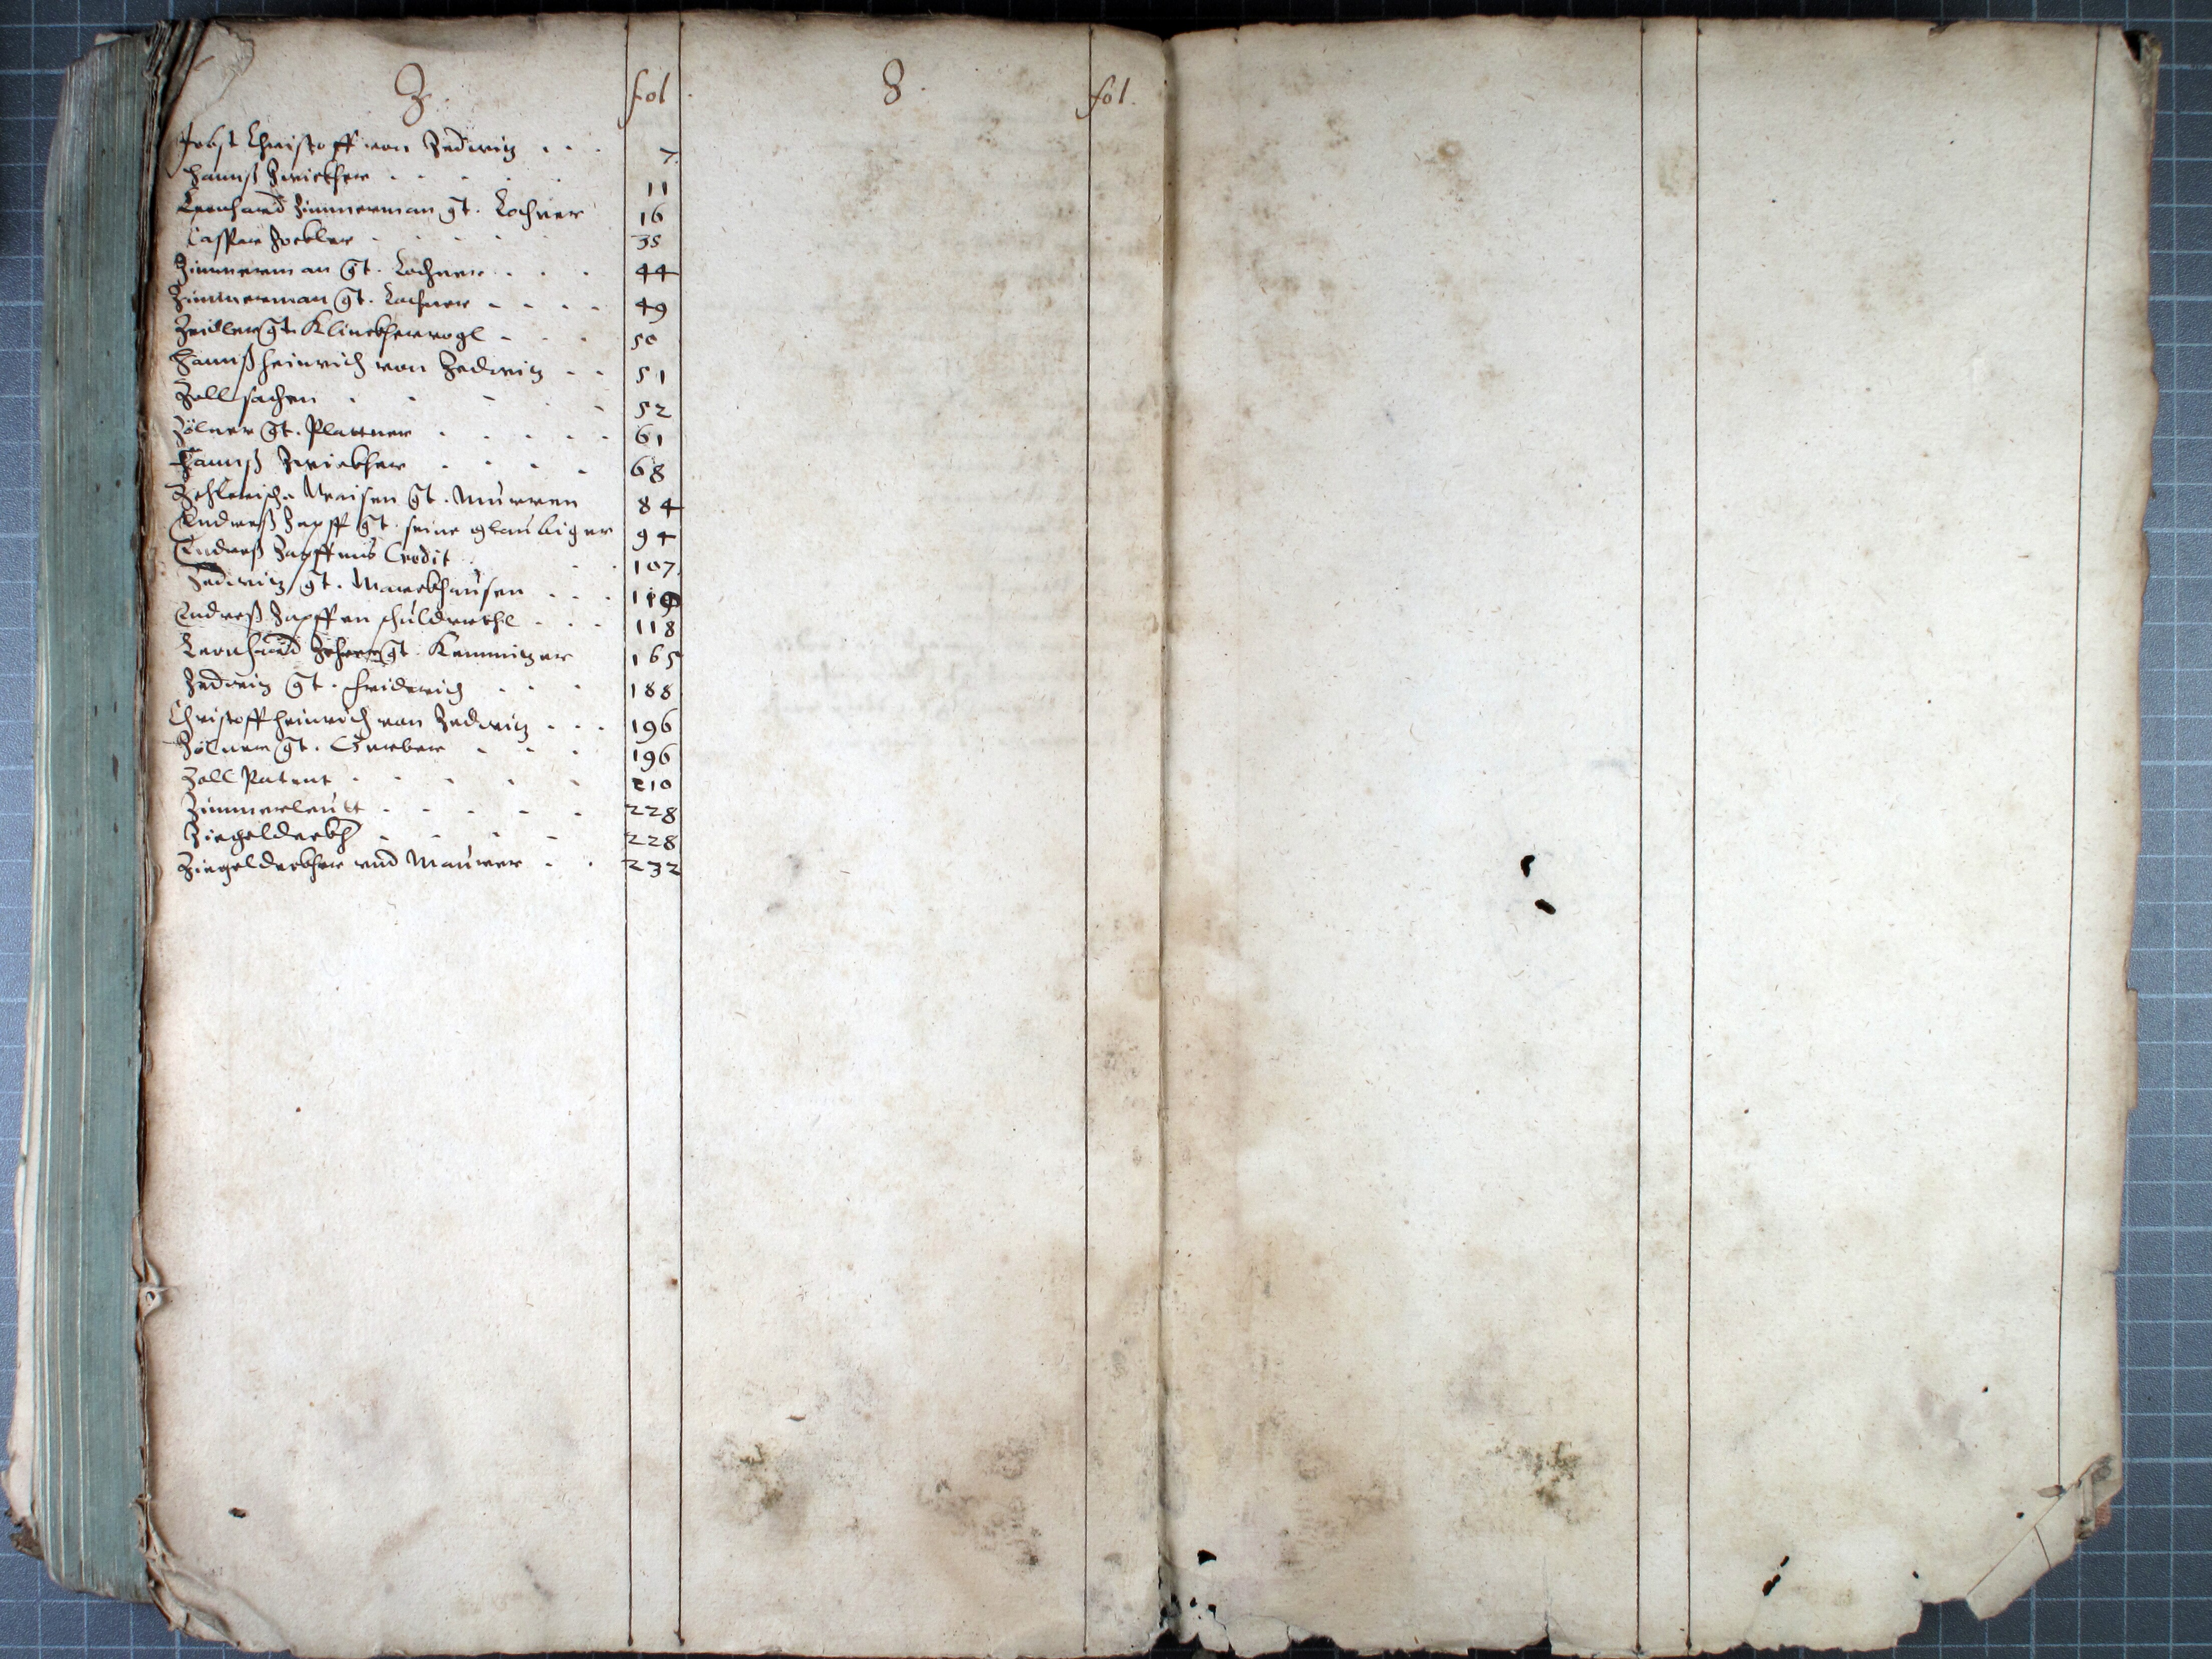 Z. fol. Z. fol.
Jobst Christoff von Zedwitz . . . 7.
Hannß Zwickher . . . . 11
Leonhard Zimmerman gt. Lochner 16
Casspar Zockler . . . . 35
Zimmerman gt. Lochner . . . 44
Zimmerman gt. Lochner . . . . 49
Zeidler gt. Klinckhervogl . . . 50
Hannß Heinrich von Zedwitz . . 51
Zollsachen . . . . . 52
Zölner gt. Plattner . . . . . 61
Hannß Zwickher . . . . 68
Waisen gt. Murren 84
Endreß Zapff gt. seine glaubiger 94
Endreß Zapffens Credit . . . 107.
Zedwitz gt. Marckhausen . . . 119
Endreß Zapffen . . . 118
Leonhard gt. Kemnitzer 165
Zedwitz gt. Friderich . . . 188
Christoff Heinrich von Zedwitz . . . 196
Zölner gt. Gerber . . . 196
Zoll Patent . . . . . 210
Zimmerleutt . . . . . 228
Ziegeldeckh . . . . 228
Ziegeldeckher und Maurer . . 232